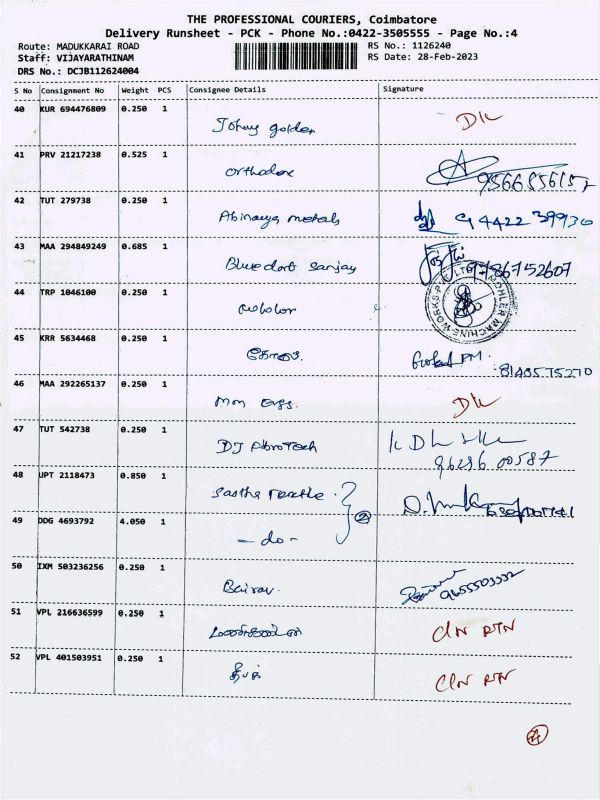 THE PROFESSIONAL COURIERS, Coimbatore
Delivery Runsheet - PCK - Phone No.:0422-3505555 - Page No.:4
Route: MADUKKARAI ROAD RS No.: 1126240
Staff: VIJAYARATHINAM RS Date: 28-Feb-2023
DRS No.: DCJB112624004
S No Consignment No Weight PCS Consignee Details Signature
40 KUR 694476809 0.250 1
Johny golden DK
41 PRV 21217238 0.525 1
orthodox
42 TUT 279738 0.250 1
Abinaya metals 94422 39930
43 MAA 294849249 0.685 1
Bluedart sanjay 9786752607
44 TRP 1046100 0.250 1
45 KRR 5634468 0.250 1
8148575270
46 MAA 292265137 0.250 1
DK
47 TUT 542738 0.250 1
DJ FibroTech
96296 00587
48 UPT 2118473 0.850 1
Sastha Textile 2
49 DDG 4693792 4.050 1
- do -
50 IXM 503236256 0.250 1
Bairav.
51 VPL 216636599 0.250 1
RTN
52 VPL 401503951 0.250 1
தீபக் RTN